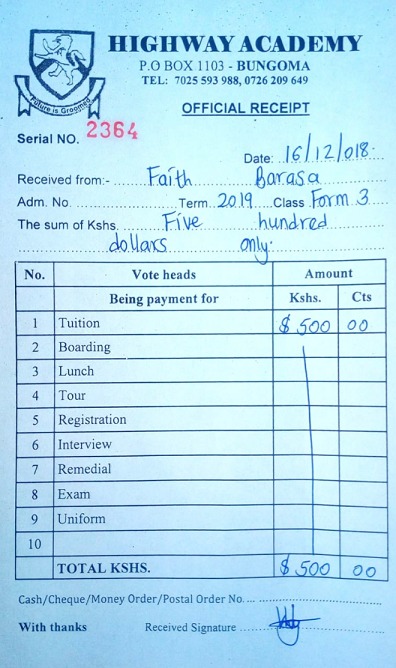 HIGHWAY ACADEMY
P.O BOX 1103 - BUNGOMA
TEL: 7025 593 988, 0726 209 649
Future is Groomed
OFFICIAL RECEIPT
Serial NO. 2364
Date: 16/12/018.
Received from:- Faith Barasa
Adm. No. Term 2019 Class Form 3
The sum of Kshs. Five hundred
dollars only.
No. Vote heads Amount
Being payment for Kshs. Cts
1 Tuition $ 500 00
2 Boarding
3 Lunch
4 Tour
5 Registration
6 Interview
7 Remedial
8 Exam
9 Uniform
10
TOTAL KSHS. $ 500 00
Cash/Cheque/Money Order/Postal Order No.
With thanks Received Signature